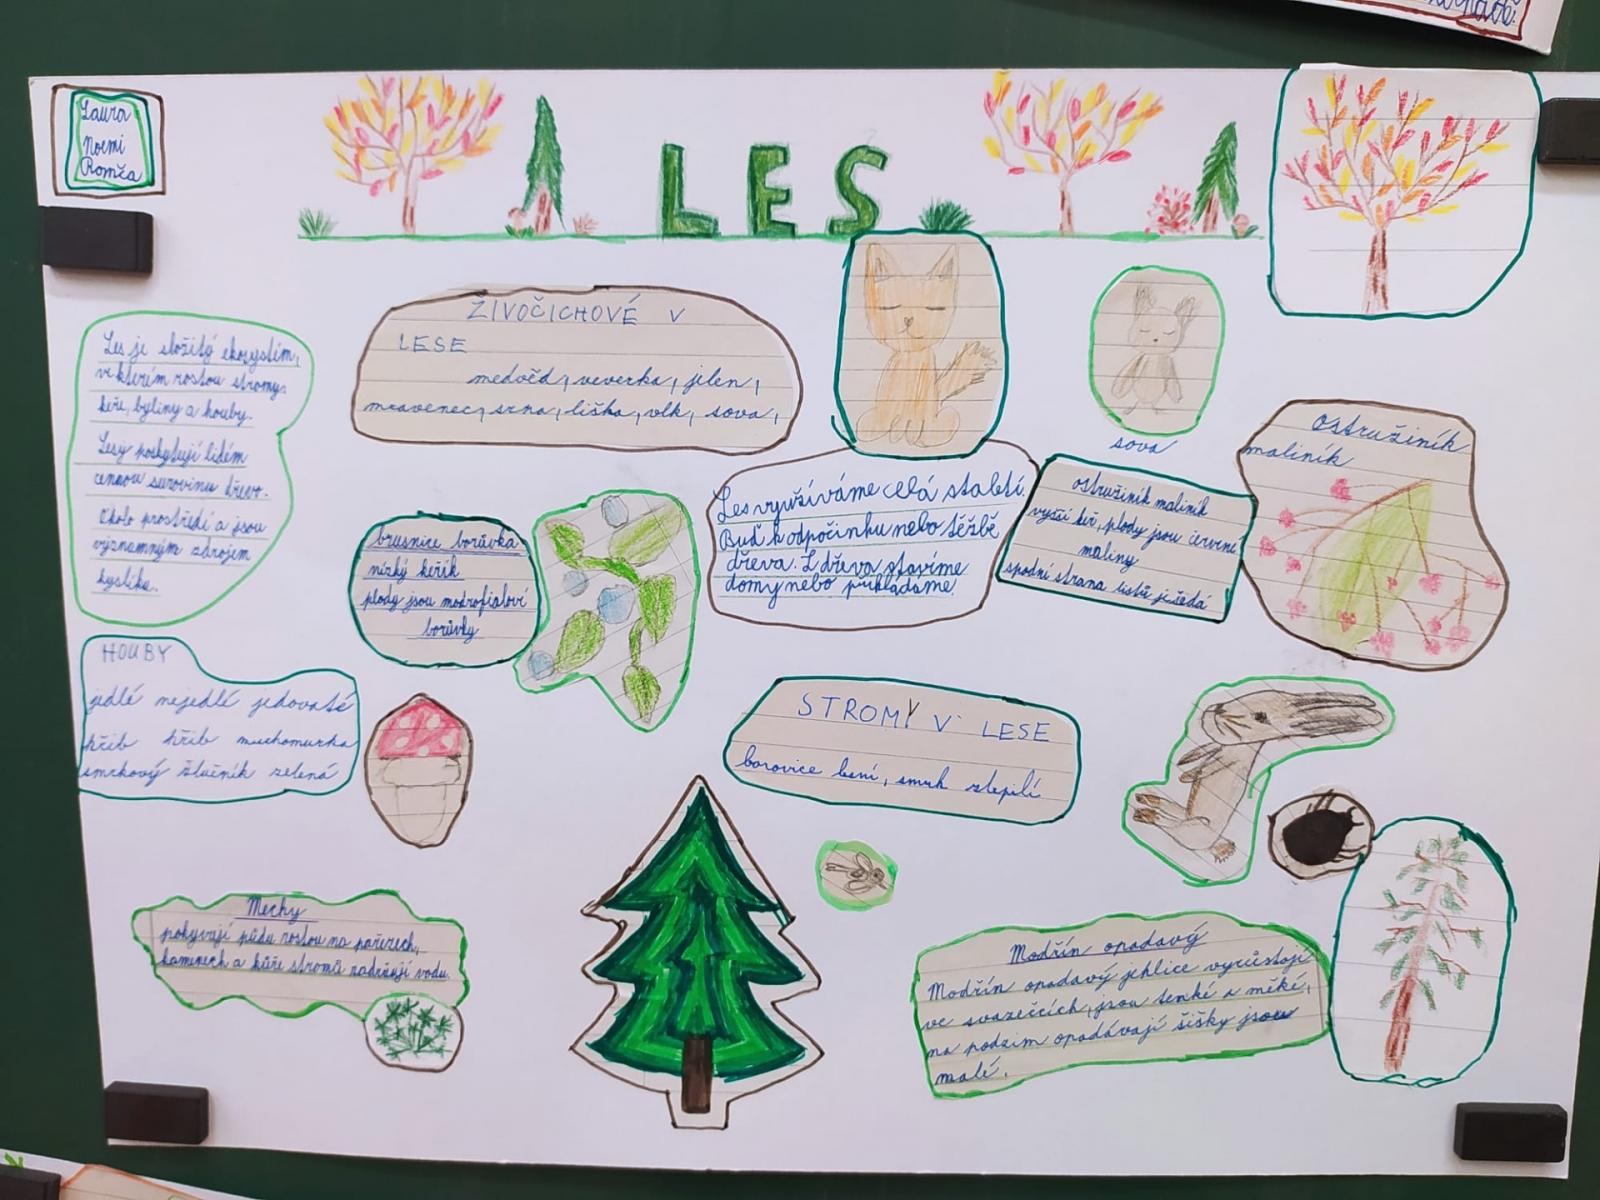 Laura
Noemi
Romža
LES
ŽIVOČICHOVÉ V
LESE
medvěd, veverka, jelen,
mravenec, srna, liška, vlk, sova,
sova
Les je složitý ekosystém,
ve kterém rostou stromy,
keře, byliny a houby.
Lesy poskytují lidem
cennou surovinu dřevo.
Okolo prostředí a jsou
významným zdrojem
kyslíku.
brusnice borůvka
nízký keřík
plody jsou modrofialoví
borůvky
Les využíváme celá staletí.
Buď k odpočinku nebo těžbě
dřeva. Z dřeva stavíme
domy nebo přikládáme.
ostružiník maliník
vyšší keř, plody jsou červené
maliny
spodní strana listů je šedá
Ostružiník
maliník
HOUBY
jedlé nejedlé jedovaté
hřib hřib muchomurka
smrkový žlučník zelená
STROMY V LESE
borovice lesní, smrk ztepilí
Mechy
pokyvají půdu rostou na pařezech,
kamenech a kůře stromů zadržují vodu.
Modřín opadavý
Modřín opadavý jehlice vyrůstají
ve svazečcích, jsou tenké a měké,
na podzim opadávají šišky jsou
malé.